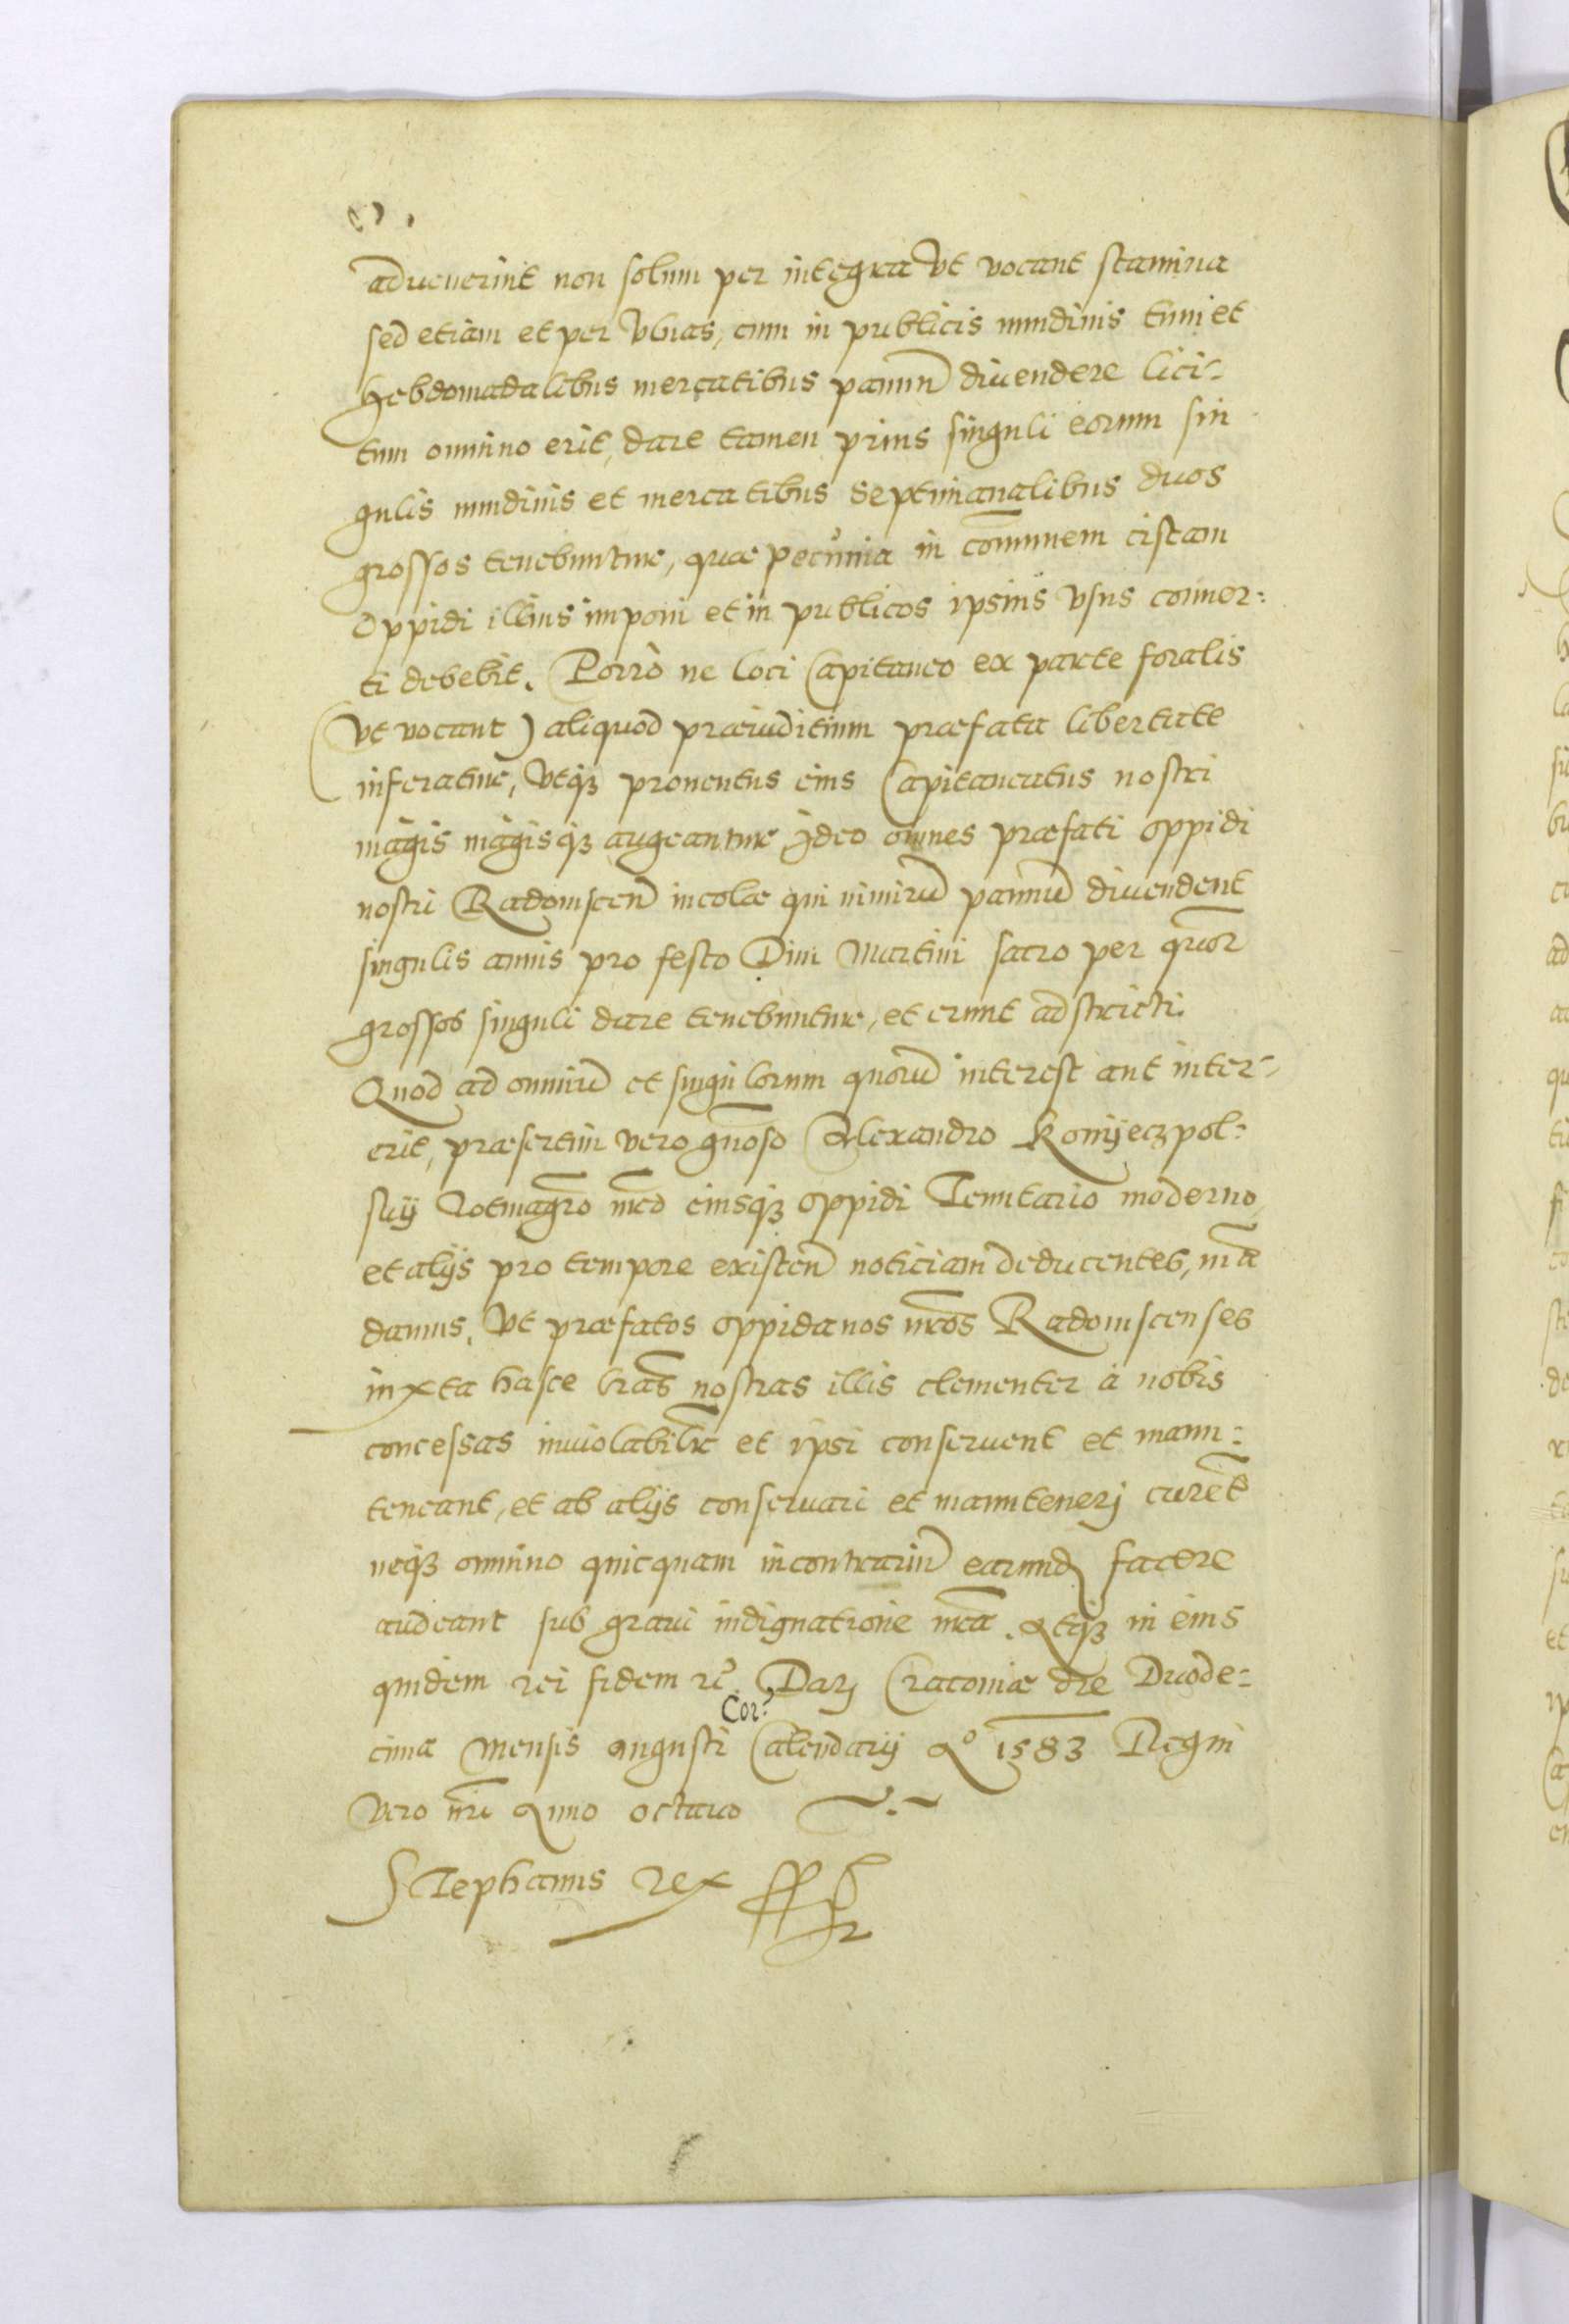 advenerint non solum per integra Vt vocant stamina
sed etiam et per Vlnas, cum in publicis nundinis tum et
hebdomadalibus mercatibus pannũ divendere lici-
tum omnino erit, dare tamen prius singuli eorum sin
gulis nundinis et mercatibus septimanalibus duos
grossos tenebuntur, quæ pecunia in com̃unem cistam
oppidi illius imponi et in publicos ipsius vsus conuer:
ti debebit. Porrò ne loci Capitaneo ex parte foralis
(vt vocant) aliquod præiuditium præfata libertate
inferatur, vtqꝫ prouentus eius Capitaneatus nostri
magis magisqꝫ augeantur, Ideo omnes præfati oppidi
nostri Radomscen̄ incolæ qui nimirũ pannũ divendent
singulis annis pro festo Diui Martini sacro per quõr
grossos singuli dare tenebuntur, et erunt adstricti.
Quod ad omniũ et singulorum quorũ interest aut inter-
erit, præsertim vero gñoso Alexandro Konijeczpol:
skij Rotmagr̃o nr̃o eiusqꝫ oppidi Tenutario moderno,
et alijs pro tempore existen̄ noticiam deducentes, mã
damus. Vt præfatos oppidanos nr̃os Radomscenses
iuxta hasce lr̃as nostras illis clementer à nobis
concessas inuiolabilr̃ et ipsi conseruent et manu:
teneant, et ab alijs conseruari et manutenerj curẽt
neqꝫ omnino quicquam in contrariũ earund̃ facere
audeant sub graui indignatione nr̃a. Atqꝫ in eius
quidem rei fidem rc̃. Datj Cracoviæ die Duode:
cima mensis Augusti Cor? Calendarij Aº 1583 Regni
vero nr̃i Anno octauo
Stephanus Rex